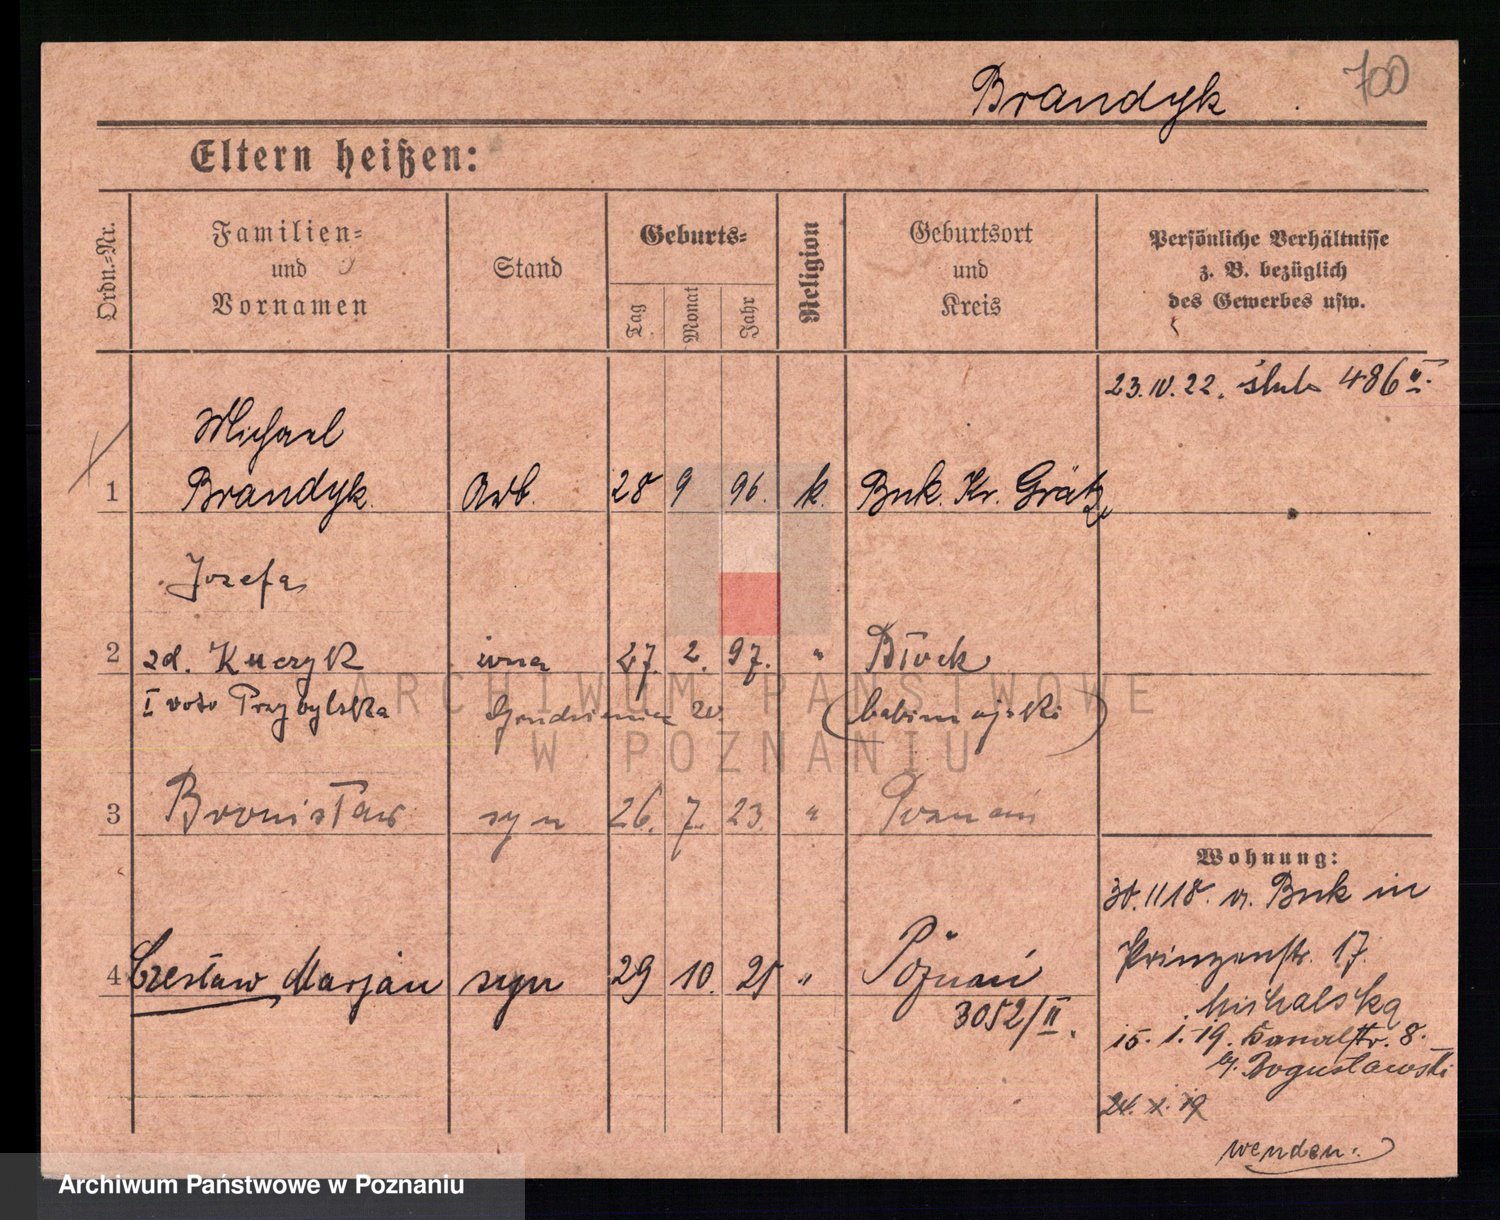 Brandyk
700
Eltern heißen:
Ordn.=Nr.
Familien=
und
Vornamen
Stand
Geburts=
Tag
Monat
Jahr
Religion
Geburtsort
und
Kreis
Persönliche Verhältnisse
z. B. bezüglich
des Gewerbes usw.
23. IV. 22. ślub 486 II.
Michael
1 Brandyk. Arb. 28 9 96. k. Buk. Kr. Grätz
Józefa
2 zd. Kuczyk żona 27. 2. 97. " Błock
I voto Przybylska 20. (babimojski)
3 Bronisław syn 26. 7. 23. " Poznań
Wohnung:
30. 11 18. v. Buk in
Prinzenstr. 17.
4 Czesław Marjan syn 29 10. 25 " Poznań
3052/II.
Michalska
15. 1. 19. Kanalstr. 8.
b. Bogusławski
24. X. 19
wenden.
ARCHIWUM PAŃSTWOWE
W POZNANIU
Archiwum Państwowe w Poznaniu